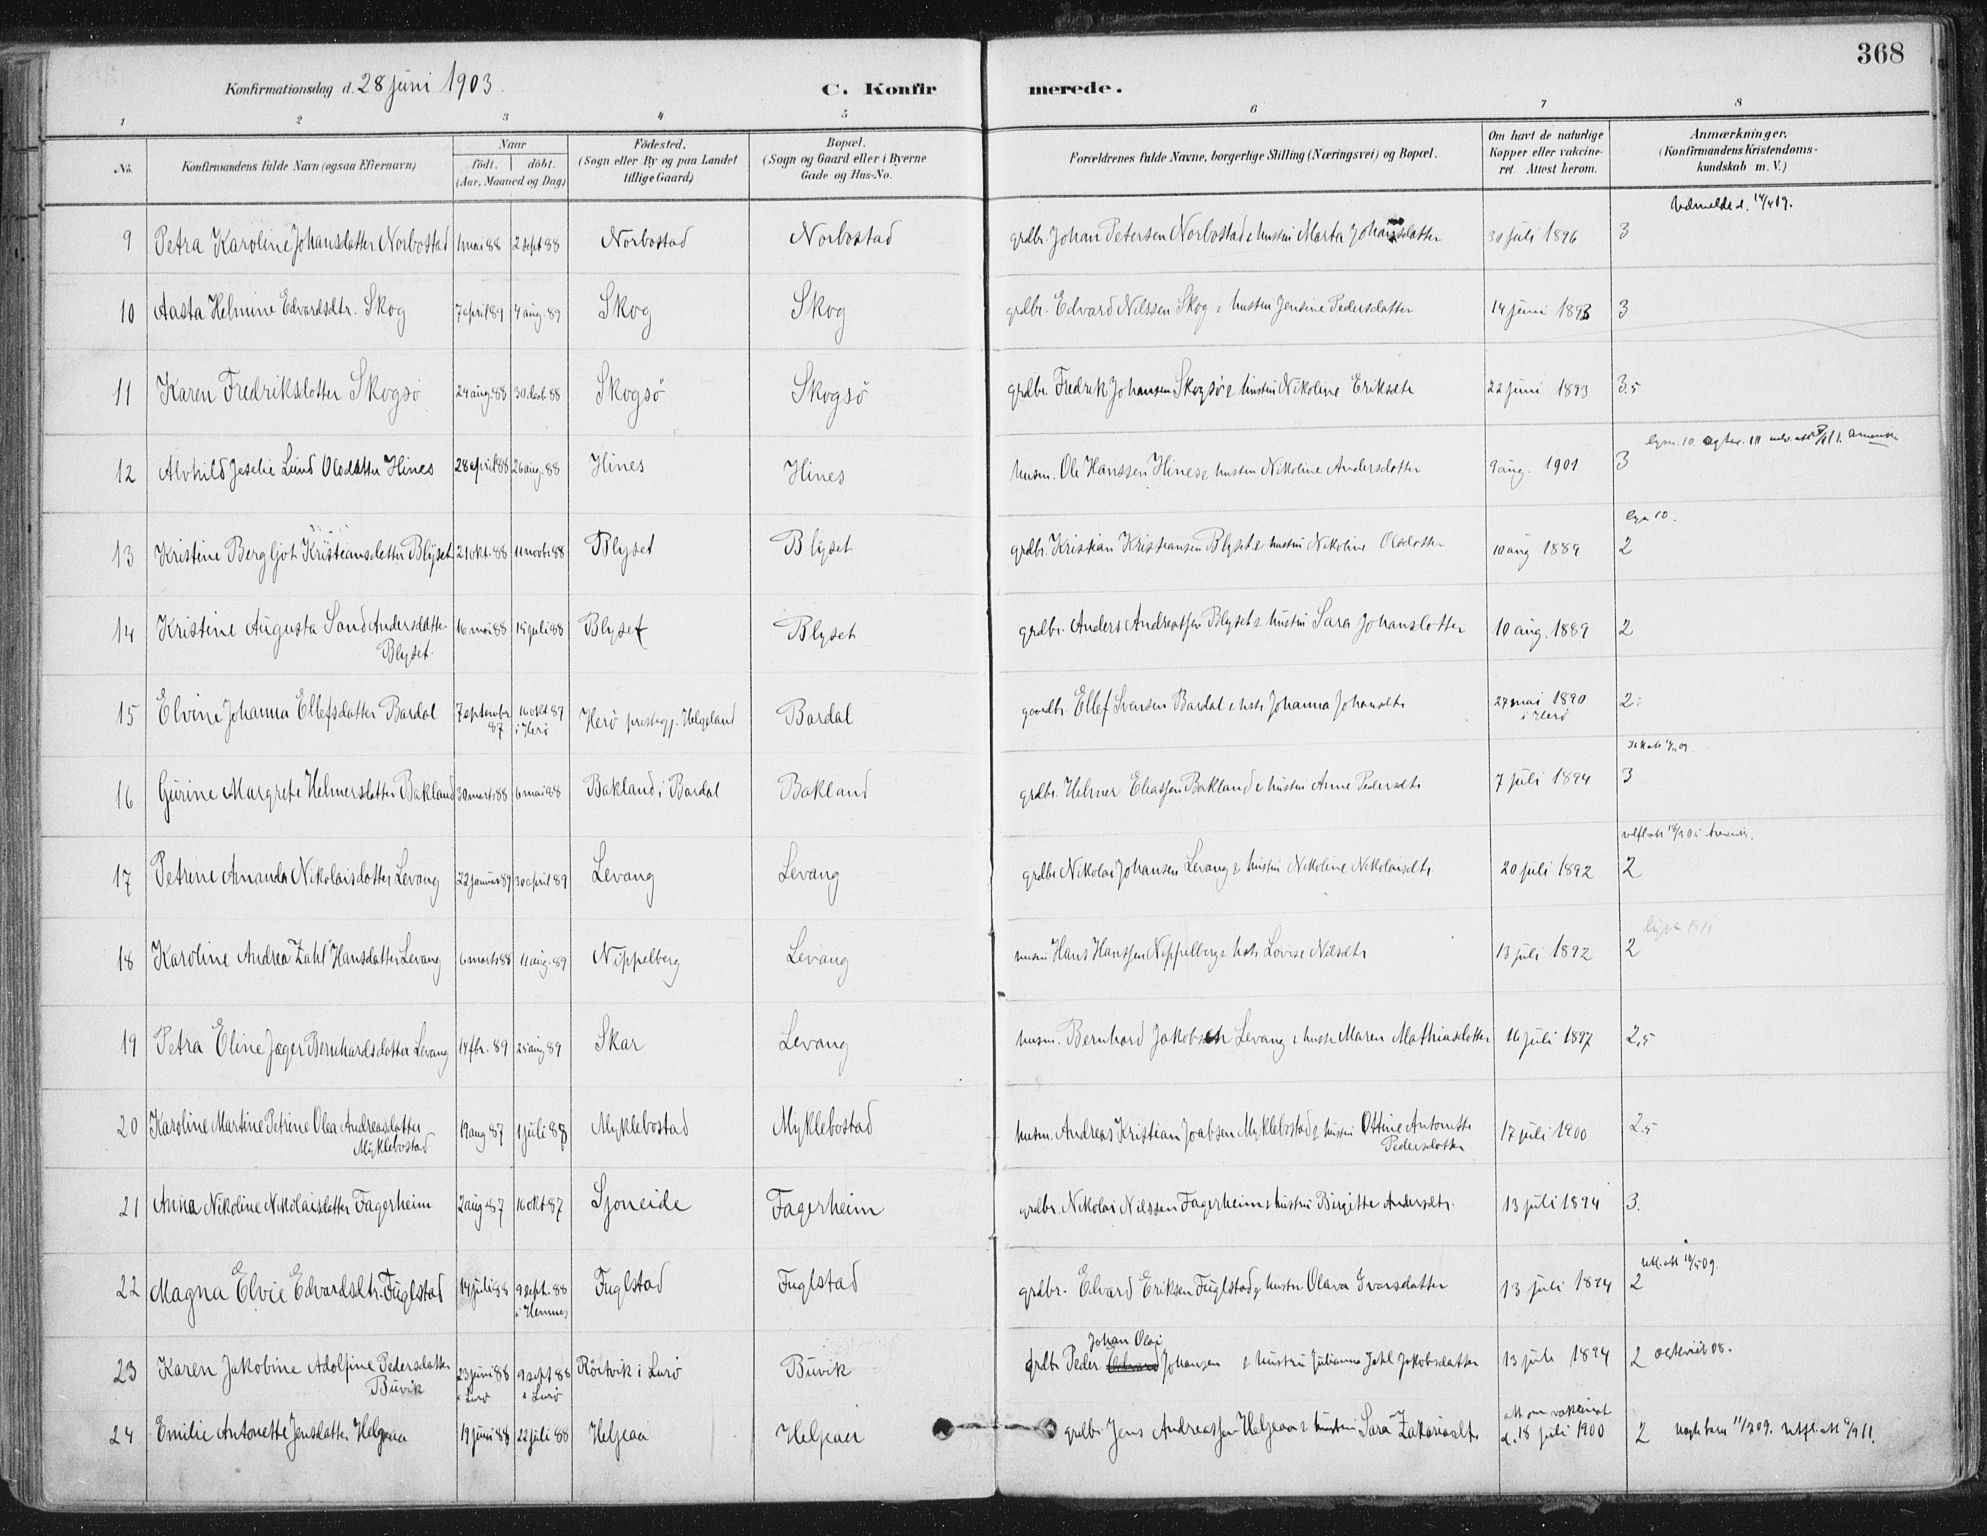 368
Konfirmationsdag d. 28 juni 1903.
C. Konfir merede.
1 2 3 4 5 6 7 8
No. Konfirmandens fulde Navn (ogsaa Efternavn) Naar födt. döbt. (Aar, Maaned og Dag) Födested. (Sogn eller By og paa Landet tillige Gaard) Bopæl. (Sogn og Gaard eller i Byerne Gade og Hus-No. Forældrenes fulde Navne, borgerlige Stilling (Næringsvei) og Bopæl. Om havt de naturlige Kopper eller vakcineret Attest herom. Anmærkninger. (Konfirmandens Kristendomskundskab m. V.)
9 Petra Karoline Johansdatter Norbostad 1 mai 88 2 sept 88 Norbostad Norbostad grdbr. Johan Petersen Norbostad & hustru Marta Johansdatter 30 juli 1896 3
10 Aasta Helmine Edvardsdtr. Skog 7 april 89 4 aug. 89 Skog Skog grdbr. Edvard Nilssen Skog & hustru Jensine Pedersdatter 14 juni 1893 3
11 Karen Fredriksdatter Skogsö 24 aug. 88 30 decb 88 Skogsö Skogsö grdbr. Fredrik Johansen Skogsö & hustru Nikoline Eriksdtr 22 juni 1893 3.5
12 Alvhild Lund Olsdatter Hines 28 april 88 26 aug. 88 Hines Hines husm. Ole Hanssen Hines & hustru Nikoline Andersdatter 9 aug. 1901 3
13 Kristine Bergljot Kristiansdatter Blyset 21 okt. 88 11 novbr 88 Blyset Blyset grdbr. Kristian Kristiansen Blyset & hustru Nikoline Olsdatter 10 aug 1889 2
14 Kristine Augusta Sand Andersdatter 16 mai 88 15 juli 88 Blyset Blyset grdbr. Anders Andreassen Blyset & hustru Sara Johansdatter 10 aug. 1889 2
Blyset
15 Elvine Johanna Ellefsdatter Bardal 7 september 87 16 okt 87 i Herö Herö prestegj. Helgeland Bardal gaardbr. Ellef Svensen Bardal & hstr Johanna Johansdtr 29 mai 1890 i Herö 2
16 Gurine Margrete Helmersdatter Bakland 30 marts 88 6 mai 88 Bakland i Bardal Bakland grdbr. Helmer Eliassen Bakland & hustru Anne Pedersdtr 7 juli 1894 3
17 Petrine Amanda Nikolaisdatter Levang 22 januar 89 30 april 89 Levang Levang grdbr Nikolai Johansen Levang & hustru Nikoline Nikolaisdtr 20 juli 1892 2
18 Karoline Andrea Zahl Hansdatter Levang 6 marts 88 11 aug. 89 Nippelberg Levang husm Hans Hanssen Nippelberg & hstr Lovise Nilsdtr 13 juli 1892 2
19 Petra Eline Jæger Bernhardsdatter Levang 14 fbr. 89 25 aug 89 Skar Levang husm. Bernhard Jakobsen Levang & hustr Maren Mathiasdatter 16 juli 1897 2,5
20 Karoline Martine Petrine Olea Andreasdatter 19 aug 87 1 juli 88 Myklebostad Myklebostad husm. Andreas Kristian Joabsen Myklebostad & hustru Ottine Antonette 17 juli 1900 2.5
Myklebostad Pedersdatter
21 Anna Nikoline Nikolaisdatter Fagerheim 2 aug 87 16 okt 87 Sjoneide Fagerheim grdbr. Nikolai Nilssen Fagerheim & hustru Birgitte Andersdtr. 13 juli 1894 3.
22 Magna Elvie Edvardsdtr. Fuglstad 14 juli 88 9 sept. 88 i Hemnes Fuglstad Fuglstad grdbr. Edvard Eriksen Fuglstad & hustru Olava Ivarsdatter 13 juli 1894 2
Johan Olai
23 Karen Jakobine Adolfine Pedersdatter 23 juni 88 i Lurö 9 sept 88 i Lurö Röitvik i Lurö Buvik grdbr Peder Edvard Johansen & hustru Julianna Zahl Jakobsdatter 13 juli 1894 2
Buvik
24 Emilie Antonette Jensdatter Helgaa 19 juni 88 22 juli 88 Helgaa Helgaa grdbr. Jens Andreassen Helgaa & hustru Sara Zakariasdtr d. 18 juli 1900 2